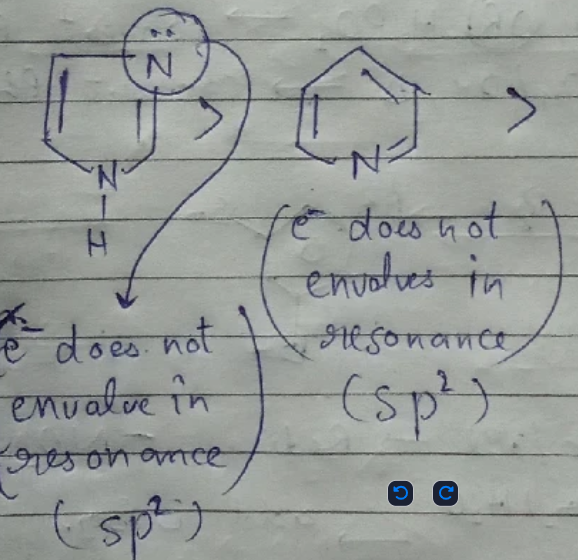 N
> >
N N
H
(e⁻ does not
envolves in
resonance)
(sp²)
e⁻ does not
envalve in
resonance)
(sp²)